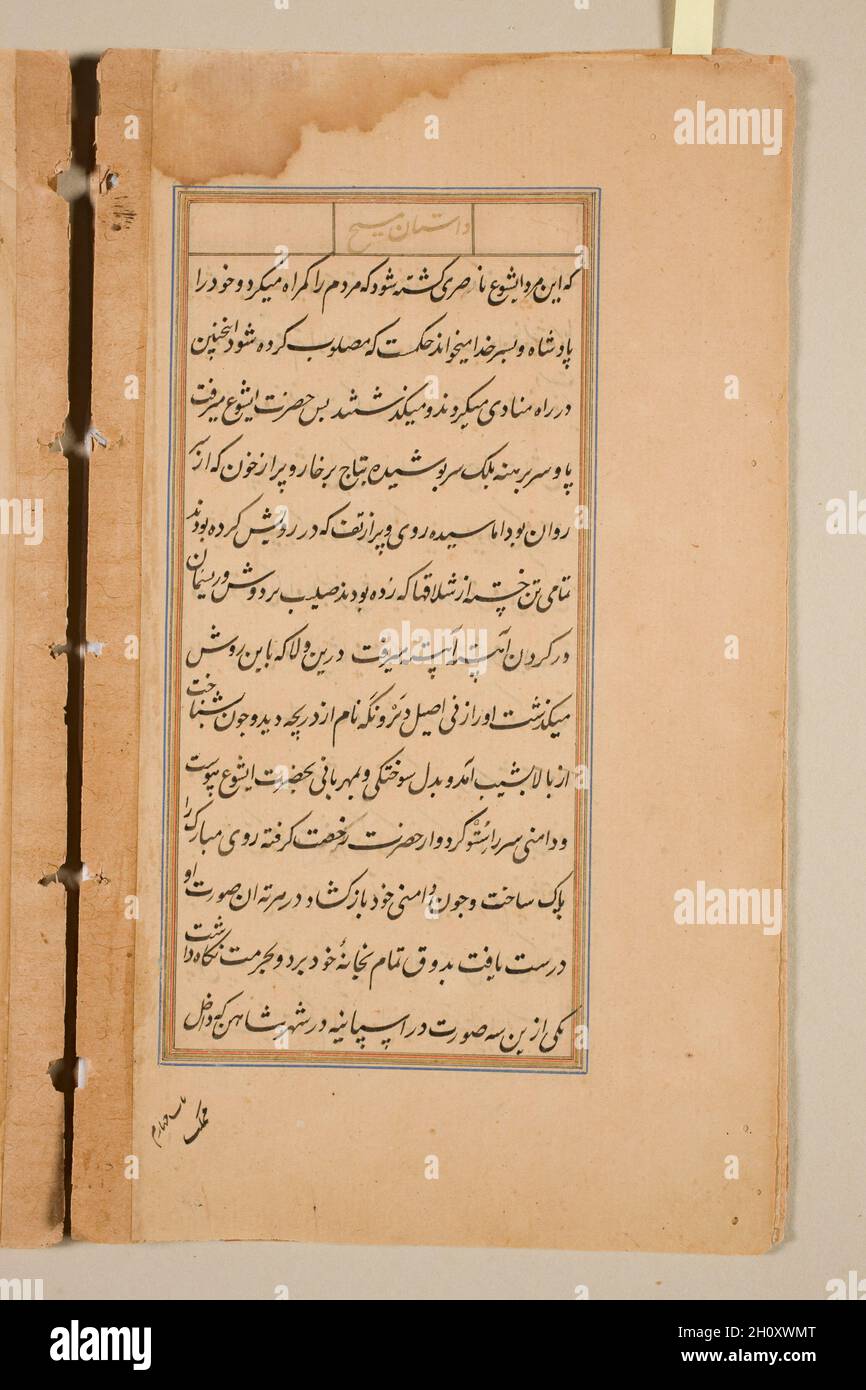 داستان مسیح
که این مرد ایشوع ناصری کشته شود که مردم را کمراه میکرد و خود را
پادشاه و پسر خدا میخواند حکمست که مصلوب کرده شود اینچنین
در راه منادی میکردند و میکذشتند پس حضرت ایشوع میرفت
پا و سر برهنه بلک سر پوشیده بتاج پرخار و پر از خون که از
روان بود اماسیده روی و پر از تف که در رویش کرده بودند
تمامی تن خسته از شلاقها که زده بودند صلیب بر دوش و ریسمان
در کردن آهسته آهسته میرفت درین ولا که باین روش
میکذشت او را زنی اصیل ورونکه نام از دریچه دید و چون شناخت
از بالا بشیب آمد و بدل سوختکی و مهربانی بحضرت ایشوع پیوست
و دامنی سر را ستو کرد و از حضرت رخصت کرفته روی مبارک را
پاک ساخت و چون دامنی خود باز کشاد در سه ته آن صورت او
درست یافت بذوق تمام بخانهٔ خود برد و بحرمت نکاه داشت
یکی ازین سه صورت در اسپانیه در شهر که داخل
باب چهارم
مملکت
alamy
Image ID: 2H0XWMT
www.alamy.com